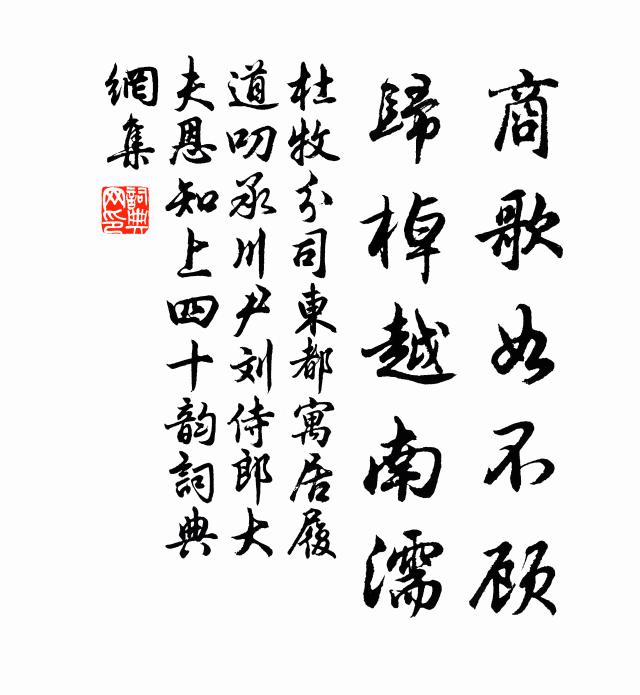 商歌如不顾
歸棹越南濡
杜牧分司東都寓居履
道叨承川尹刘侍郎大
夫恩知上四十韵詞典
網集
詞典網印